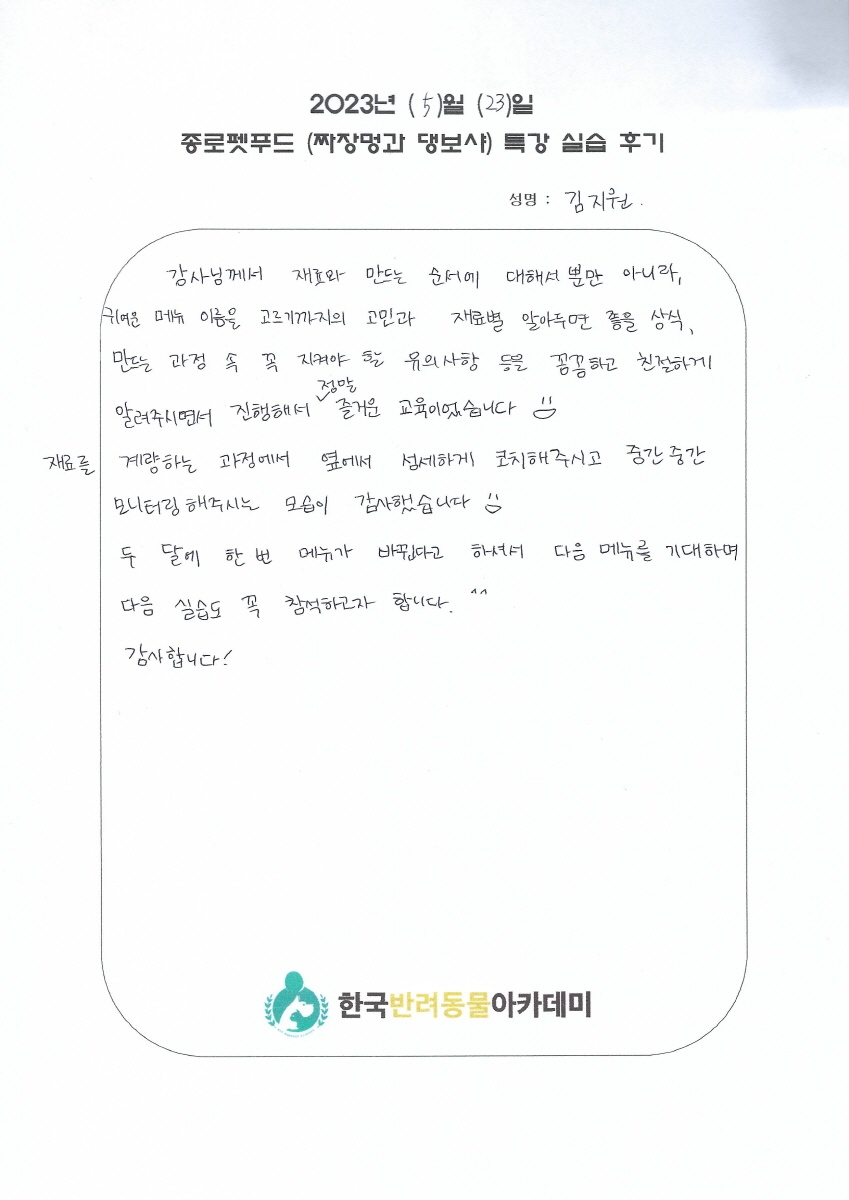 2023년 (5)월 (23)일
종로펫푸드 (짜장멍과 댕보샤) 특강 실습 후기
성명 : 김지원.
강사님께서 재료와 만드는 순서에 대해서 뿐만 아니라,
귀여운 메뉴 이름을 고르기까지의 고민과 재료별 알아두면 좋을 상식,
만드는 과정 속 꼭 지켜야 할 유의사항 등을 꼼꼼하고 친절하게
알려주시면서 진행해서 정말 즐거운 교육이었습니다
재료를 계량하는 과정에서 옆에서 섬세하게 코치해주시고 중간중간
모니터링 해주시는 모습이 감사했습니다
두 달에 한 번 메뉴가 바뀐다고 하셔서 다음 메뉴를 기대하며
다음 실습도 꼭 참석하고자 합니다. ^^
감사합니다!
한국반려동물아카데미